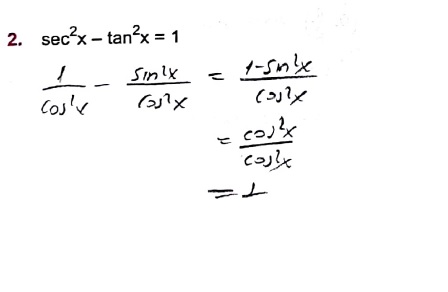 2. sec²x – tan²x = 1
1/cos²x – sin²x/cos²x = 1-sin²x/cos²x
= cos²x/cos²x
= 1